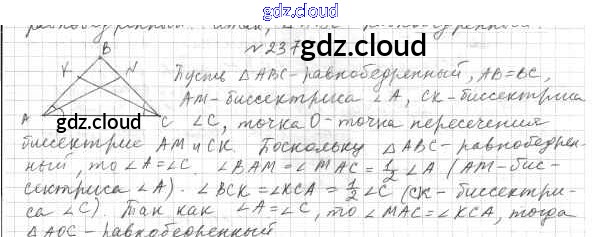 gdz.cloud
равнобедренный. Итак,
№ 237
gdz.cloud
B
K
N
A
C
gdz.cloud
Пусть △ABC - равнобедренный, AB=BC,
AM - биссектриса ∠A, CK - биссектриса
∠C, точка O - точка пересечения
биссектрис AM и CK. Поскольку △ABC - равнобедрен-
ный, то ∠A=∠C. ∠BAM = ∠MAC = 1/2 ∠A (AM - бис-
сектриса ∠A). ∠BCK = ∠KCA = 1/2 ∠C (CK - биссектри-
са ∠C). Так как ∠A=∠C, то ∠MAC = ∠KCA, тогда
△AOC - равнобедренный